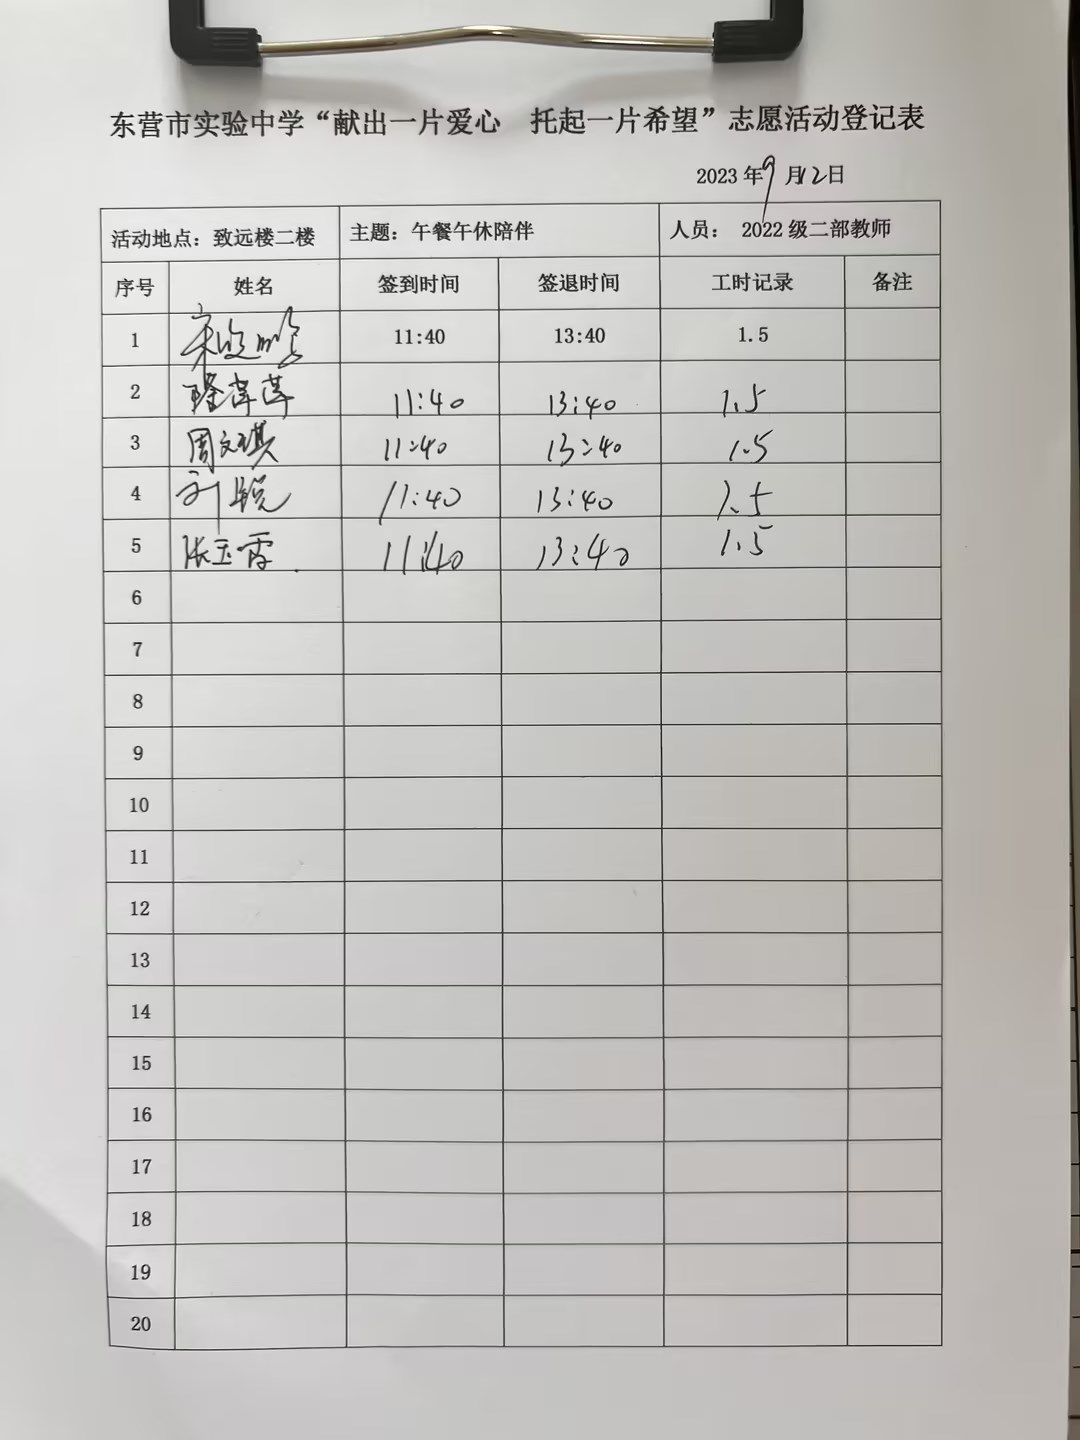 东营市实验中学“献出一片爱心 托起一片希望”志愿活动登记表
2023 年 9 月 12 日
活动地点：致远楼二楼 主题：午餐午休陪伴 人员： 2022 级二部教师
序号 姓名 签到时间 签退时间 工时记录 备注
1 11:40 13:40 1.5
2 11:40 13:40 1.5
3 周文琪 11:40 13:40 1.5
4 刘锐 11:40 13:40 1.5
5 张玉霞 11:40 13:40 1.5
6
7
8
9
10
11
12
13
14
15
16
17
18
19
20